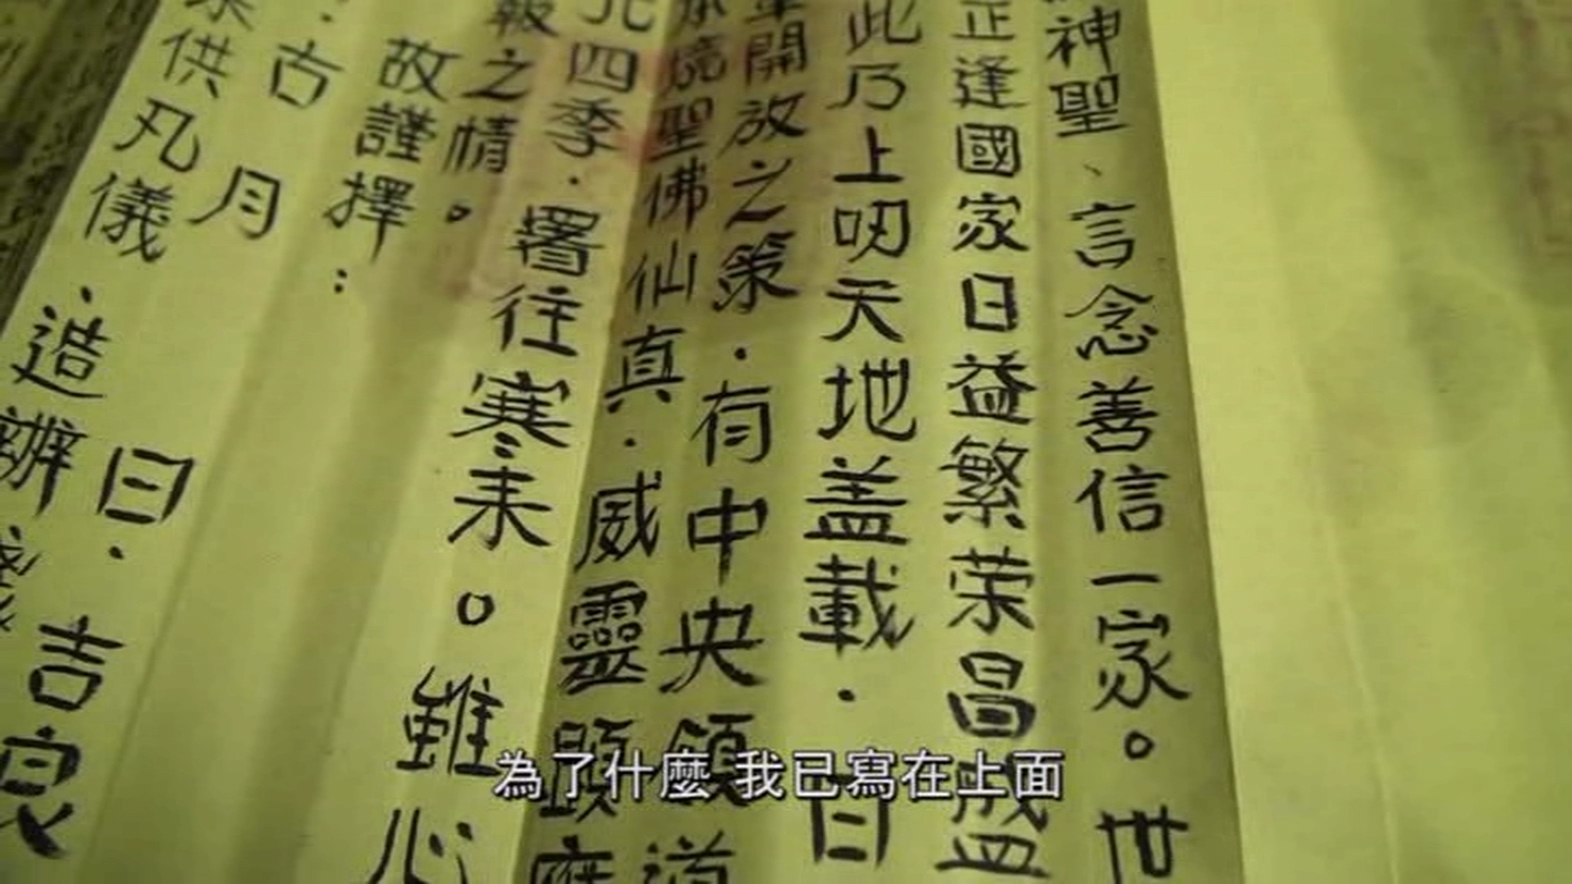 神聖、言念善信一家。世
正逢國家日益繁荣昌盛
此乃上叨天地盖載.日
開放之策.有中央領道
境聖佛仙真.威靈顕應
北四季.署往寒耒。雖心
報之情。
故謹擇：
古月日.吉良
供凡儀.造辦
為了什麼 我已寫在上面